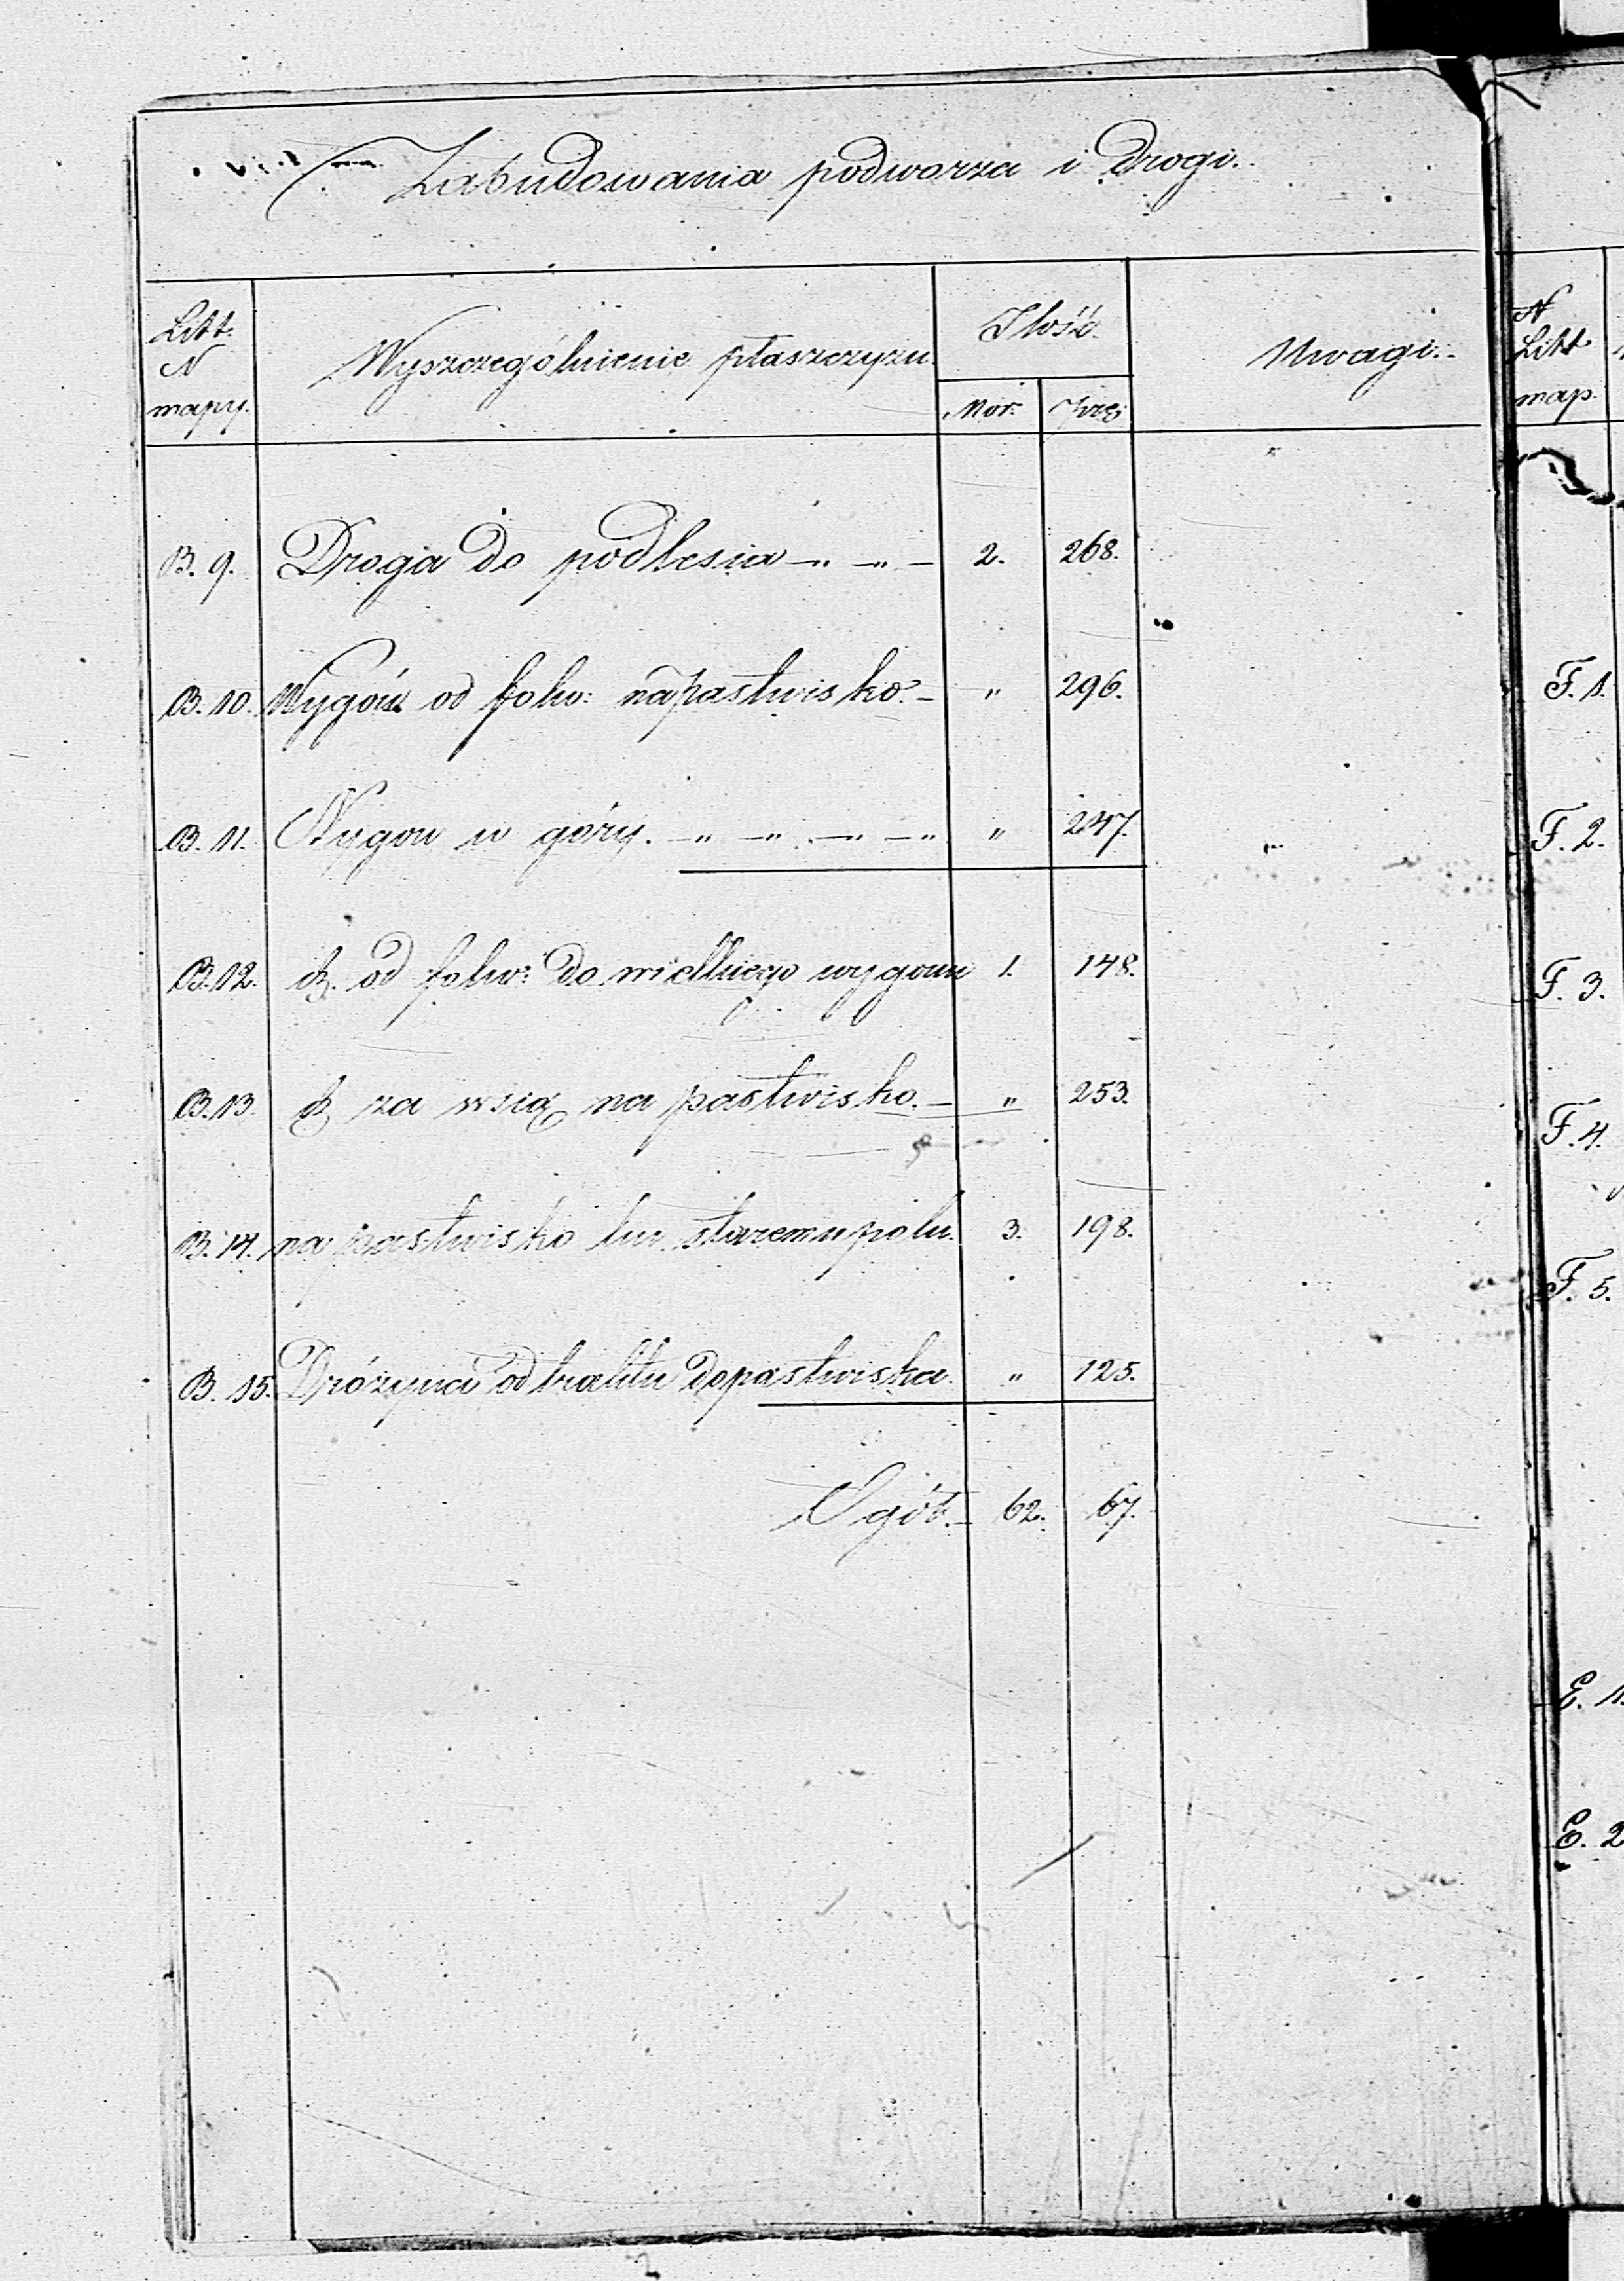 Zabudowania podworza i Drogi.
Litt. N mapy. Wyszczególnienie płaszczyzn. Ilość. Uwagi.
Mor. Prę.
B. 9. Droga do podlesia — " — " — 2. 268.
B. 10. Wygon od folw: na pastwisko. — " 296.
B. 11. Wygon w góry. — " — " — " — " " 247.
B. 12. dt. od folw: do wielkiego wygonu 1. 148.
B. 13. dt za wsią na pastwisko. — " 253.
B. 14. na pastwisko ku staremu polu. 3. 198.
B. 15. Dróżyna od traktu do pastwiska. " 125.
Ogół. — 62. 67.
N
Litt
map.
F. 1.
F. 2.
F. 3.
F. 4.
F. 5.
E. 1.
E. 2